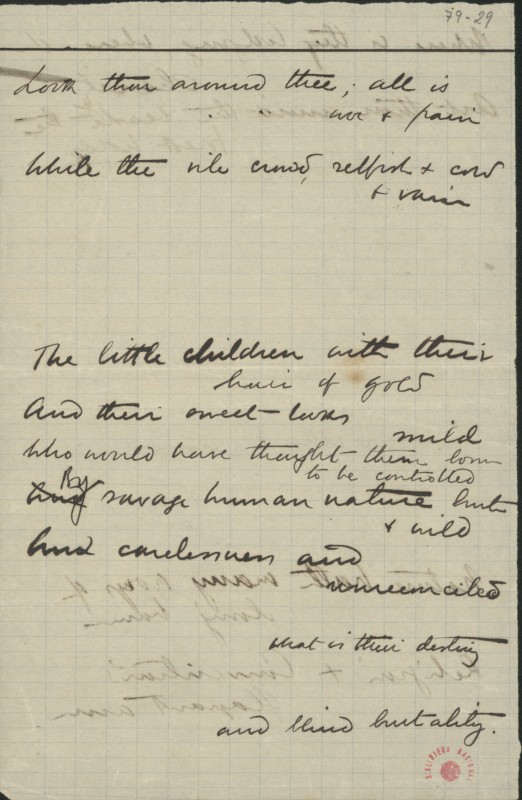 79-29
Look thou around thee; all is
woe & pain
While the vile crowd, selfish & cold
& vain
The little children with their
hair of gold
And their sweet looks
mild
Who would have thought them born
to be controlled
By
And savage human nature brute
& wild
And carelessness and
unreconciled
what is their destiny
and blind brutality.
BIBLIOTECA NACIONAL